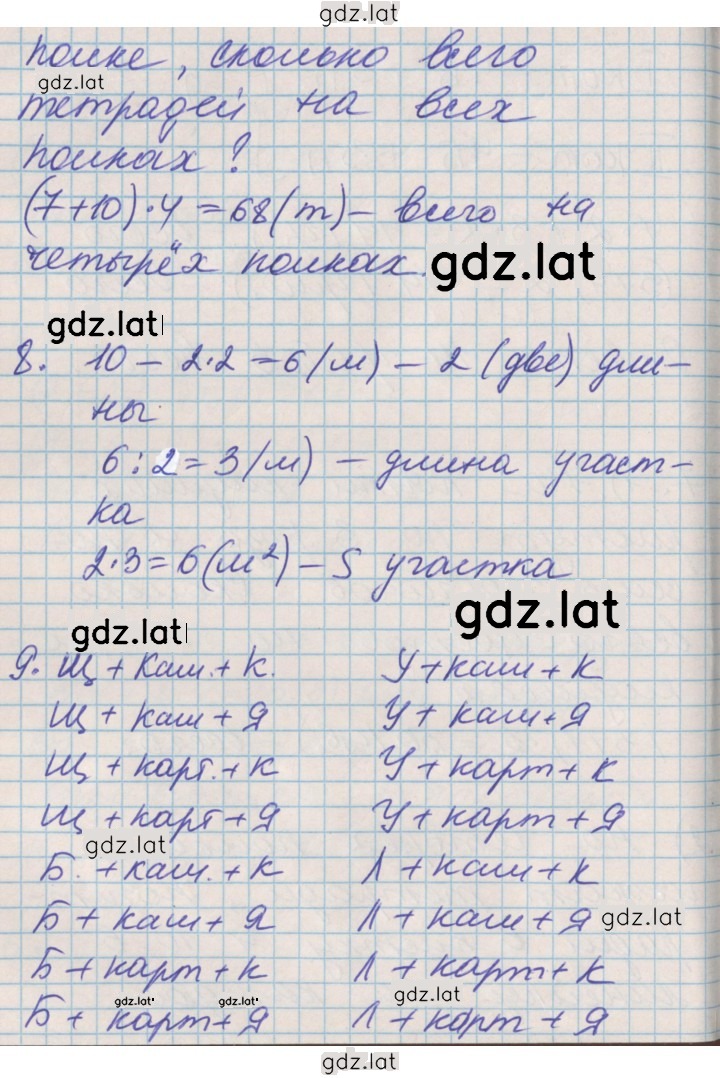 gdz.lat
полке, сколько всего
gdz.lat
тетрадей на всех
полках?
(7+10)·4=68(т) – всего на
четырёх полках. gdz.lat
gdz.lat
8. 10 – 2·2 = 6(м) – 2 (две) дли–
ны
6:2=3(м) – длина участ–
ка
2·3=6(м²) – S участка
gdz.lat gdz.lat
9. Щ + каш. + к. У+каш+к
Щ + каш + я У + каш+я
Щ + карт. + к У + карт + к
Щ + карт + я У + карт + я
gdz.lat
Б. + каш. + к Л + каш + к
Б + каш + я Л + каш + я gdz.lat
Б + карт + к Л + карт + к
gdz.lat gdz.lat gdz.lat
Б + карт + я Л + карт + я
gdz.lat